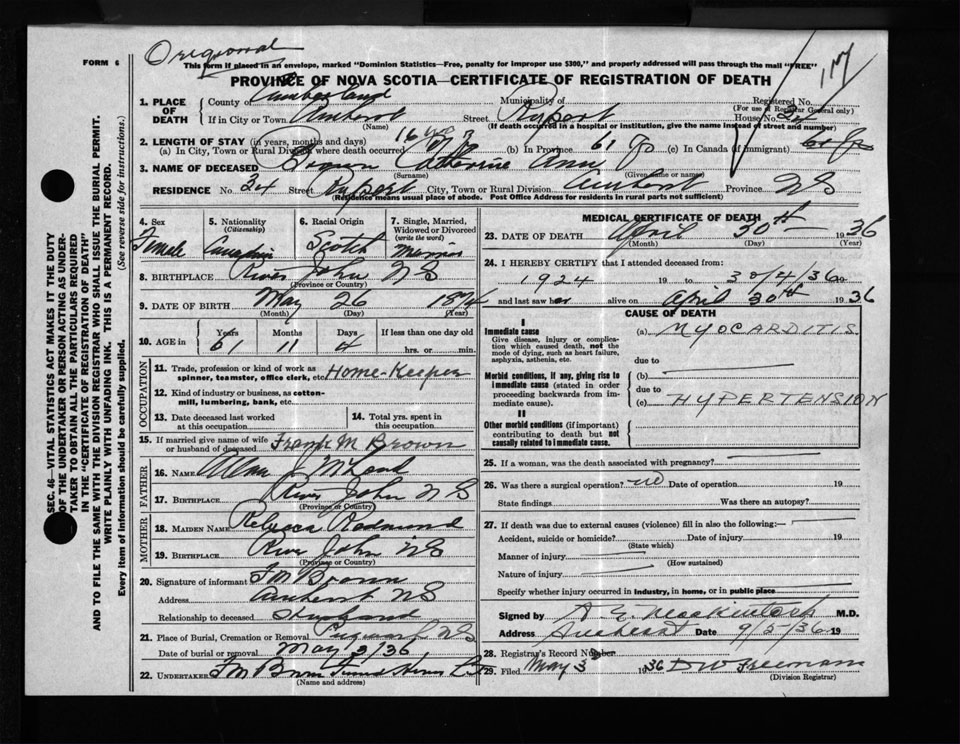 Oregional
FORM 6
This form if placed in an envelope, marked "Dominion Statistics—Free, penalty for improper use $300," and properly addressed will pass through the mail "FREE"
PROVINCE OF NOVA SCOTIA—CERTIFICATE OF REGISTRATION OF DEATH
1. PLACE OF DEATH
County of Cumberland Municipality of Registered No.
(For use of Registrar General only)
If in City or Town Amherst Street Rupert House No. 24
(Name) (If death occurred in a hospital or institution, give the name instead of street and number)
2. LENGTH OF STAY (in years, months and days)
(a) In City, Town or Rural Division where death occurred 16 (b) In Province 61 (c) In Canada (if immigrant) 61
3. NAME OF DECEASED Brown Catherine Ann
(Surname) (Given name or names)
RESIDENCE No. 24 Street Rupert City, Town or Rural Division Amherst Province NS
(Residence means usual place of abode. Post Office Address for residents in rural parts not sufficient)
4. Sex Female
5. Nationality (Citizenship) Canadian
6. Racial Origin Scotch
7. Single, Married, Widowed or Divorced (write the word) Married
8. BIRTHPLACE River John NS
(Province or Country)
9. DATE OF BIRTH May 26 1874
(Month) (Day) (Year)
10. AGE in Years 61 Months 11 Days 4 If less than one day old hrs. or min.
OCCUPATION
11. Trade, profession or kind of work as spinner, teamster, office clerk, etc. Home-Keeper
12. Kind of industry or business, as cotton-mill, lumbering, bank, etc.
13. Date deceased last worked at this occupation
14. Total yrs. spent in this occupation
15. If married give name of wife or husband of deceased Frank M Brown
FATHER
16. NAME
17. BIRTHPLACE River John NS
(Province or Country)
MOTHER
18. MAIDEN NAME Rebecca Redmond
19. BIRTHPLACE River John NS
(Province or Country)
20. Signature of informant F M Brown
Address Amherst NS
Relationship to deceased Husband
21. Place of Burial, Cremation or Removal NS
Date of burial or removal May 3/36
22. UNDERTAKER F M Brown
(Name and address)
MEDICAL CERTIFICATE OF DEATH
23. DATE OF DEATH April 30th 1936
(Month) (Day) (Year)
24. I HEREBY CERTIFY that I attended deceased from:
1924 19 to 30/4/36 19
and last saw her alive on April 30th 1936
CAUSE OF DEATH
I
Immediate cause
Give disease, injury or complication which caused death, not the mode of dying, such as heart failure, asphyxia, asthenia, etc.
(a) MYOCARDITIS
due to
Morbid conditions, if any, giving rise to immediate cause (stated in order proceeding backwards from immediate cause).
(b)
due to
(c) HYPERTENSION
II
Other morbid conditions (if important) contributing to death but not causally related to immediate cause.
25. If a woman, was the death associated with pregnancy?
26. Was there a surgical operation? no Date of operation 19
State findings Was there an autopsy?
27. If death was due to external causes (violence) fill in also the following:—
Accident, suicide or homicide? Date of injury 19
(State which)
Manner of injury
(How sustained)
Nature of injury
Specify whether injury occurred in industry, in home, or in public place
Signed by A. E. Mackintosh M.D.
Address Amherst Date 9/5/36 19
28. Registrar's Record Number
29. Filed May 3 1936 D W Freeman
(Division Registrar)
SEC. 46—VITAL STATISTICS ACT MAKES IT THE DUTY
OF THE UNDERTAKER OR PERSON ACTING AS UNDER-
TAKER TO OBTAIN ALL THE PARTICULARS REQUIRED
IN THE "CERTIFICATE OF REGISTRATION OF DEATH"
AND TO FILE THE SAME WITH THE DIVISION REGISTRAR WHO SHALL ISSUE THE BURIAL PERMIT.
WRITE PLAINLY WITH UNFADING INK. THIS IS A PERMANENT RECORD.
Every item of information should be carefully supplied. (See reverse side for instructions.)